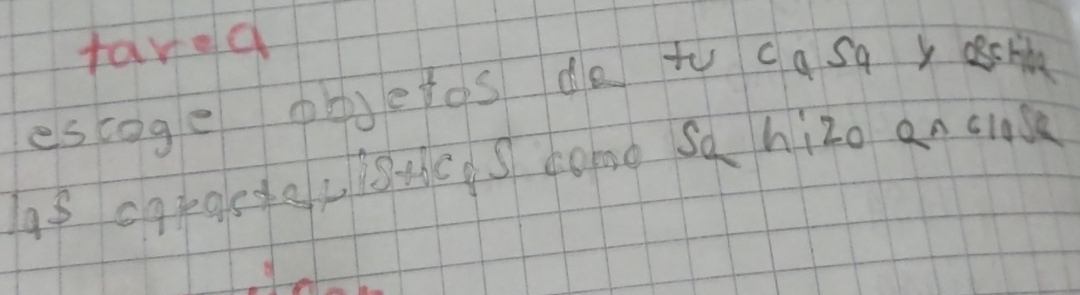 tarea
escoge objetos de tu casa y escribe
las caracteristicas como se hizo en clase